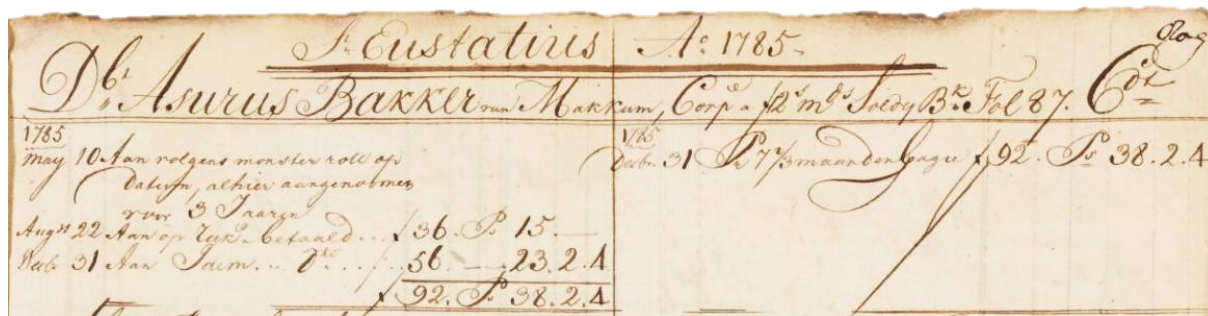 St. Eustatius Ao. 1785.
Dbt. Asurus Bakker van Makkum, Corpe. a f12 's mds. Soldy Bk. Fol 87. Cdt.
1785
May 10 Aan volgens monster roll op
datum, alhier aangenoomen
voor 3 Jaaren
Augst 22 Aan op betaald... f 36. Ps. 15.—
Decbr. 31 Aan Idem... Do. ... 56.—,, 23.2.4
f 92. Ps. 38.2.4
1785
Decbr. 31 Pr. 7 2/3 maanden Gagie f 92. Ps. 38.2.4